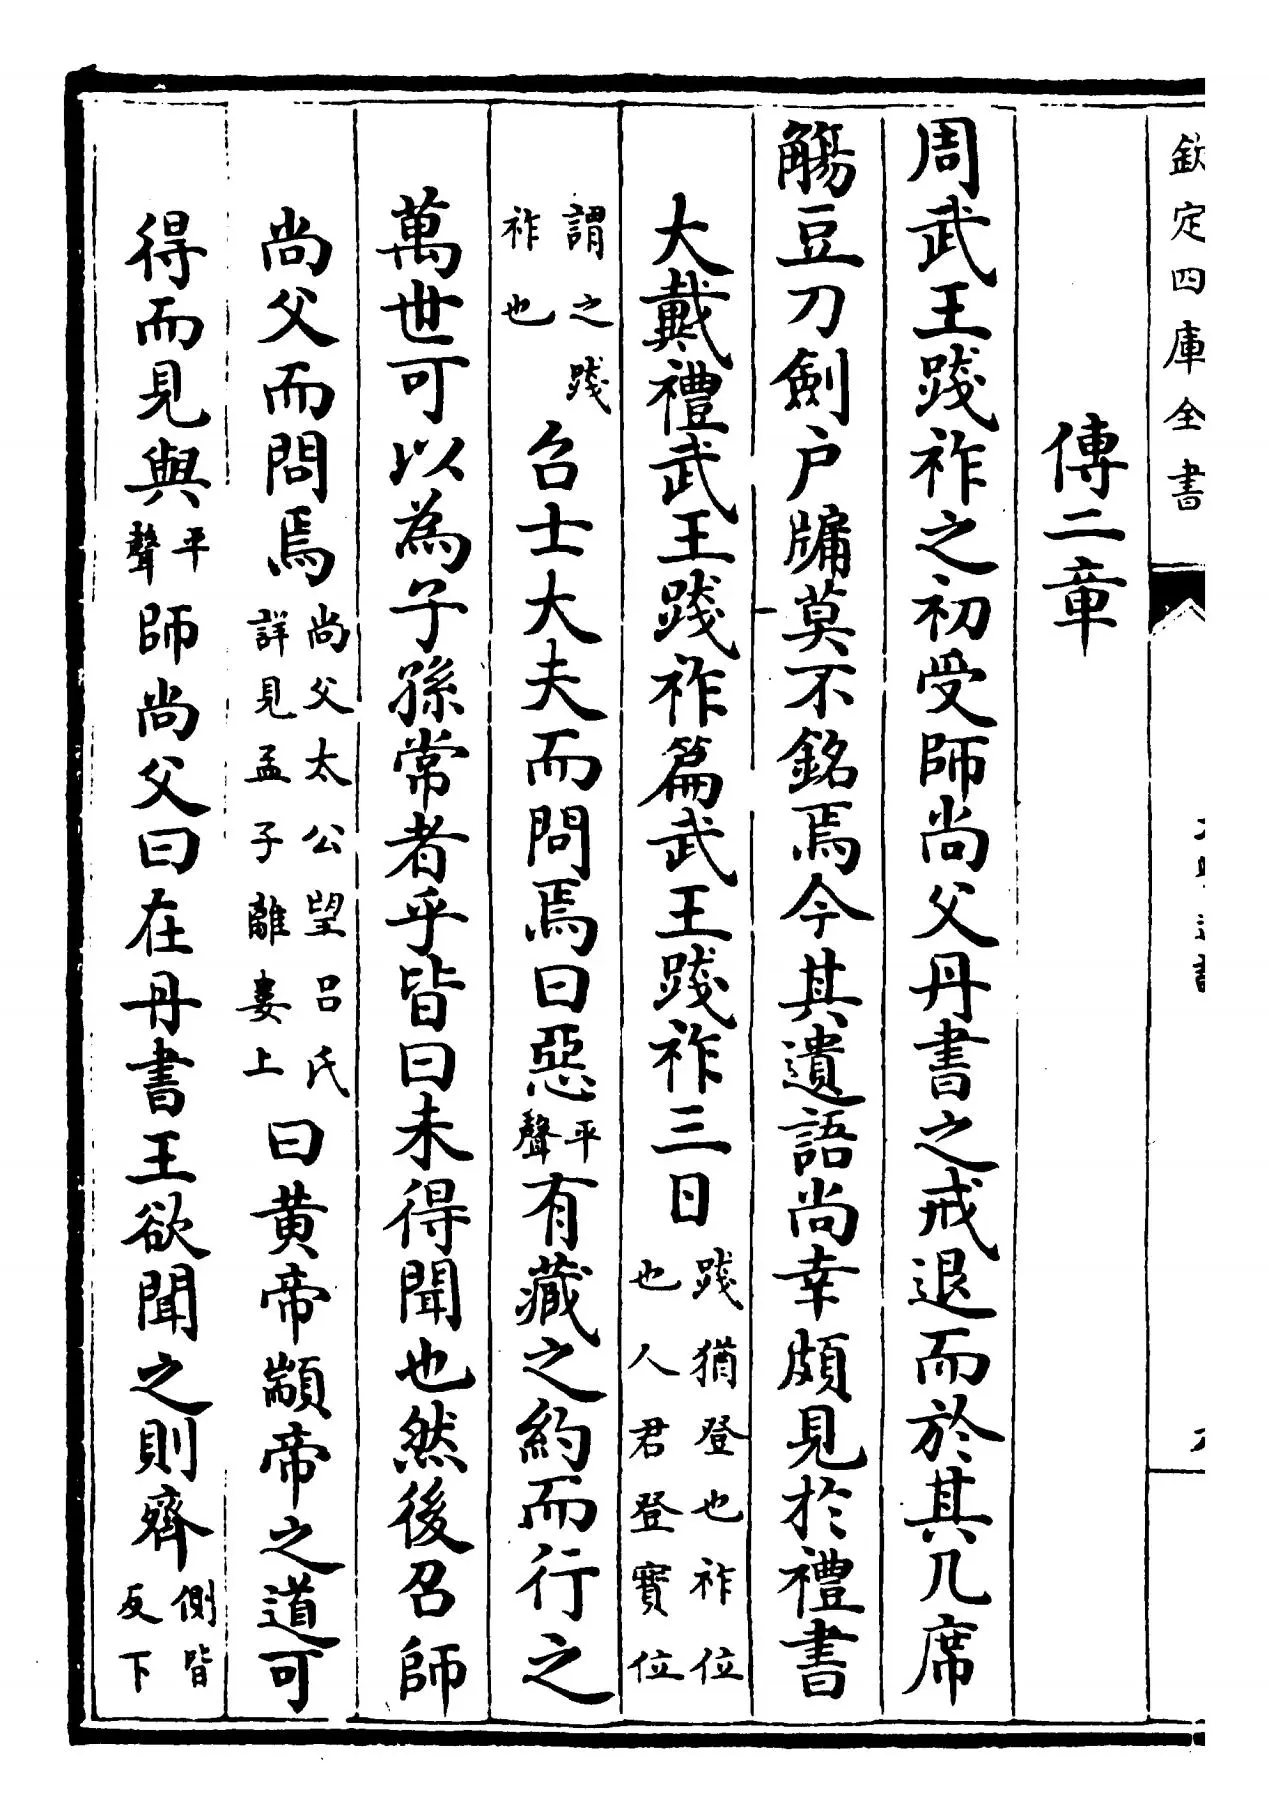 欽定四庫全書
傳二章
周武王踐祚之初受師尚父丹書之戒退而於其几席
觴豆刀劍户牖莫不銘焉今其遺語尚幸頗見於禮書
大戴禮武王踐祚篇武王踐祚三日踐猶登也祚位也人君登寳位
謂之踐祚也召士大夫而問焉曰惡平聲有藏之約而行之
萬世可以為子孫常者乎皆曰未得聞也然後召師
尚父而問焉尚父太公望吕氏詳見孟子離婁上曰黄帝顓帝之道可
得而見與平聲師尚父曰在丹書王欲聞之則齊側皆反下